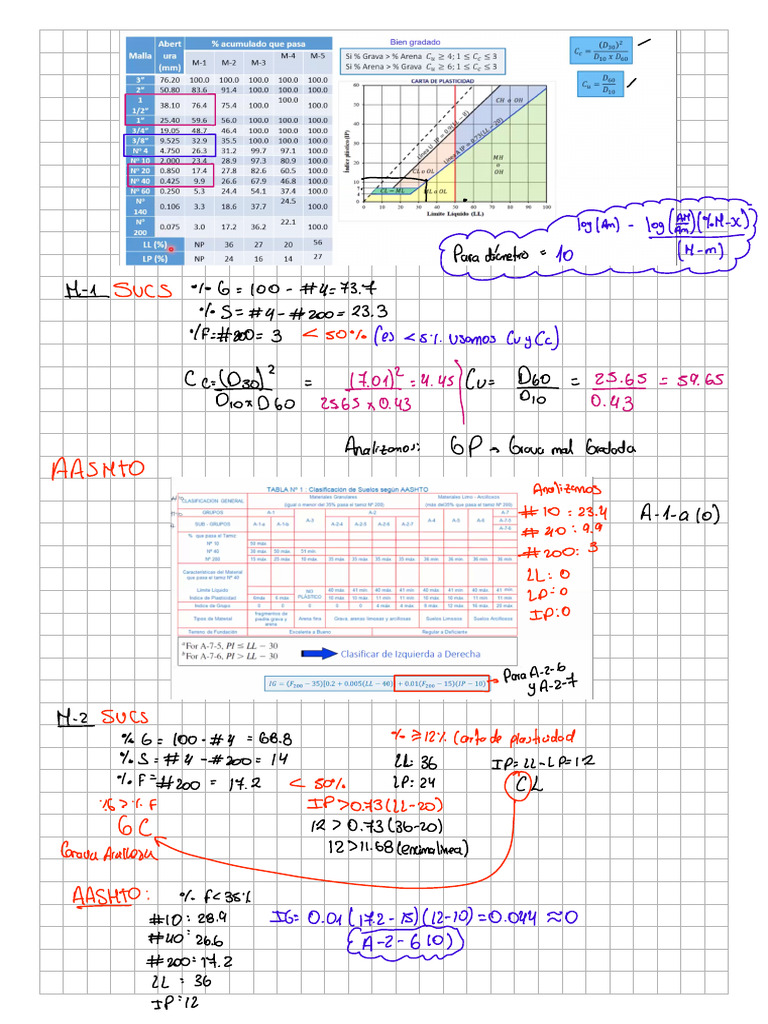 Malla | Abertura (mm) | % acumulado que pasa
M-1 | M-2 | M-3 | M-4 | M-5
3" | 76.20 | 100.0 | 100.0 | 100.0 | 100.0 | 100.0
2" | 50.80 | 83.6 | 91.4 | 100.0 | 100.0 | 100.0
1 1/2" | 38.10 | 76.4 | 75.4 | 100.0 | 100.0 | 100.0
1" | 25.40 | 59.6 | 56.0 | 100.0 | 100.0 | 100.0
3/4" | 19.05 | 48.7 | 46.4 | 100.0 | 100.0 | 100.0
3/8" | 9.525 | 32.9 | 35.5 | 100.0 | 100.0 | 100.0
Nº 4 | 4.750 | 26.3 | 31.2 | 99.7 | 97.1 | 100.0
Nº 10 | 2.000 | 23.4 | 28.9 | 97.3 | 80.9 | 100.0
Nº 20 | 0.850 | 17.4 | 27.8 | 82.6 | 60.5 | 100.0
Nº 40 | 0.425 | 9.9 | 26.6 | 67.9 | 46.8 | 100.0
Nº 60 | 0.250 | 5.3 | 24.4 | 54.1 | 37.4 | 100.0
Nº 140 | 0.106 | 3.3 | 18.6 | 37.7 | 24.5 | 100.0
Nº 200 | 0.075 | 3.0 | 17.2 | 36.2 | 22.1 | 100.0
LL (%) | NP | 36 | 27 | 20 | 56
LP (%) | NP | 24 | 16 | 14 | 27
Bien gradado
Si % Grava > % Arena Cᵤ ≥ 4; 1 ≤ C_C ≤ 3
Si % Arena > % Grava Cᵤ ≥ 6; 1 ≤ C_C ≤ 3
C_c = (D₃₀)² / D₁₀ x D₆₀
Cᵤ = D₆₀ / D₁₀
CARTA DE PLASTICIDAD
Índice plástico (IP)
60
50
40
30
20
10
0
Línea U IP = 0.9(LL - 8)
Línea A IP = 0.73(LL - 20)
CH o OH
CL o OL
MH o OH
CL - ML
ML o OL
0 10 20 30 40 50 60 70 80 90 100
Límite Líquido (LL)
Para diámetro = 10
log(Am) - log(AM/Am)(%M-x) / (M-m)
M-1 SUCS
% G = 100 - #4 = 73.7
% S = #4 - #200 = 23.3
% F = #200 = 3 < 50% (es < 5% usamos Cu y Cc)
Cc = (D30)² / D10 x D60 = (7.01)² / 25.65 x 0.43 = 4.45
Cu = D60 / D10 = 25.65 / 0.43 = 59.65
Analizamos: GP → Grava mal Gradada
AASHTO
TABLA Nº 1 : Clasificación de Suelos según AASHTO
CLASIFICACION GENERAL | Materiales Granulares (igual o menor del 35% pasa el tamiz Nº 200) | Materiales Limo - Arcillosos (más del 35% que pasa el tamiz Nº 200)
GRUPOS | A-1 | A-3 | A-2 | A-4 | A-5 | A-6 | A-7
SUB - GRUPOS | A-1-a | A-1-b | A-2-4 | A-2-5 | A-2-6 | A-2-7 | A-7-5 A-7-6
% que pasa el Tamiz
Nº 10 | 50 máx
Nº 40 | 30 máx | 50 máx | 51 mín
Nº 200 | 15 máx | 25 máx | 10 máx | 35 máx | 35 máx | 35 máx | 35 máx | 36 mín | 36 mín | 36 mín | 36 mín
Características del Material que pasa el tamiz Nº 40
Límite Líquido | NO PLÁSTICO | 40 máx | 41 mín | 40 máx | 41 mín | 40 máx | 41 mín | 40 máx | 41 mín
Indice de Plasticidad | 6máx | 6 máx | 10 máx | 10 máx | 11 mín | 11 mín | 10 máx | 10 máx | 11 mín | 11 mín
Indice de Grupo | 0 | 0 | 0 | 0 | 0 | 4 máx | 4 máx | 8 máx | 12 máx | 16 máx | 20 máx
Tipos de Material | fragmentos de piedra grava y arena | Arena fina | Grava, arenas limosas y arcillosas | Suelos Limosos | Suelos Arcillosos
Terreno de Fundación | Excelente a Bueno | Regular a Deficiente
ᵃFor A-7-5, PI ≤ LL − 30
ᵇFor A-7-6, PI > LL − 30
Clasificar de Izquierda a Derecha
IG = (F₂₀₀ − 35)[0.2 + 0.005(LL − 40)] + 0.01(F₂₀₀ − 15)(IP − 10)
Para A-2-6
y A-2-7
Analizamos
#10 : 23.4
#40 : 9.9
#200 : 3
LL : 0
LP : 0
IP : 0
A-1-a (0)
M-2 SUCS
% G = 100 - #4 = 68.8
% S = #4 - #200 = 14
% F = #200 = 17.2 < 50%
% G > % F
GC
Grava Arcillosa
% ≥ 12% Carta de plasticidad
LL: 36 IP = LL - LP = 12
LP: 24 CL
IP > 0.73(LL-20)
12 > 0.73(36-20)
12 > 11.68 (encima linea)
AASHTO:
% f < 35%
#10 : 28.9
#40 : 26.6
#200 = 17.2
LL = 36
IP = 12
IG = 0.01(17.2-15)(12-10) = 0.044 ≈ 0
A-2-6 (0)